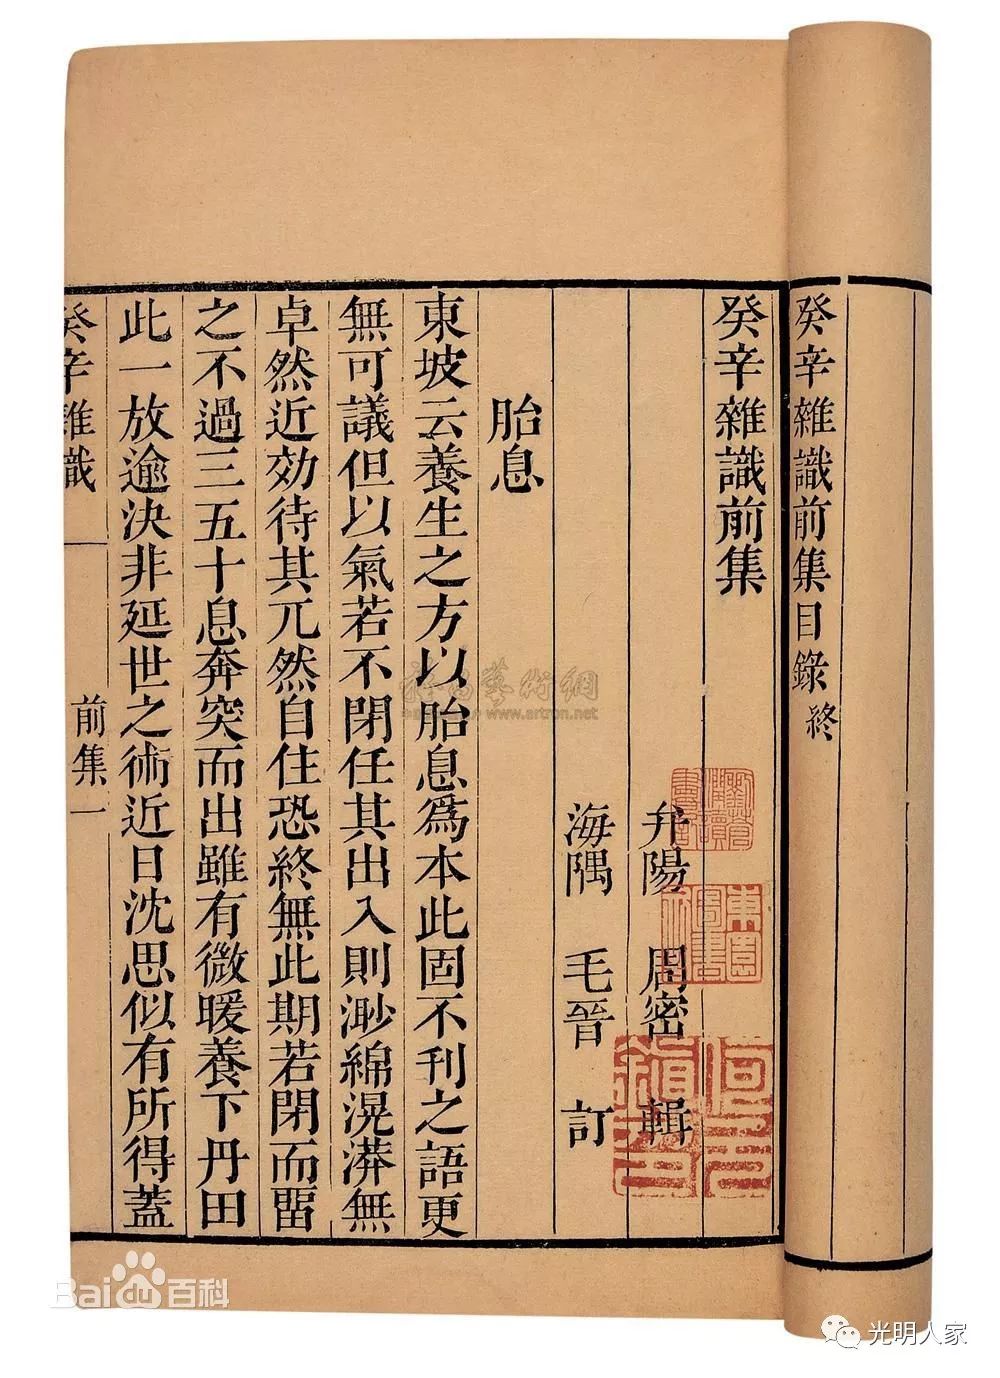 癸辛雜識前集目錄終
癸辛雜識前集
弁陽 周密 輯
海隅 毛晉 訂
胎息
東坡云養生之方以胎息爲本此固不刊之語更
無可議但以氣若不閉任其出入則渺綿滉漭無
卓然近効待其兀然自住恐終無此期若閉而畱
之不過三五十息奔突而出雖有微暖養下丹田
此一放逾決非延世之術近日沈思似有所得蓋
癸辛雜識 前集一
東園
圖書
www.artron.net
Baidu百科
光明人家